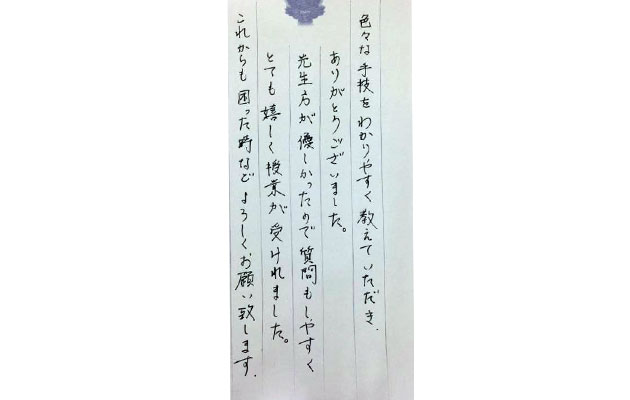 色々な手技をわかりやすく教えていただき、
ありがとうございました。
先生方が優しかったので質問もしやすく
とても嬉しく授業が受けれました。
これからも困った時などよろしくお願い致します。